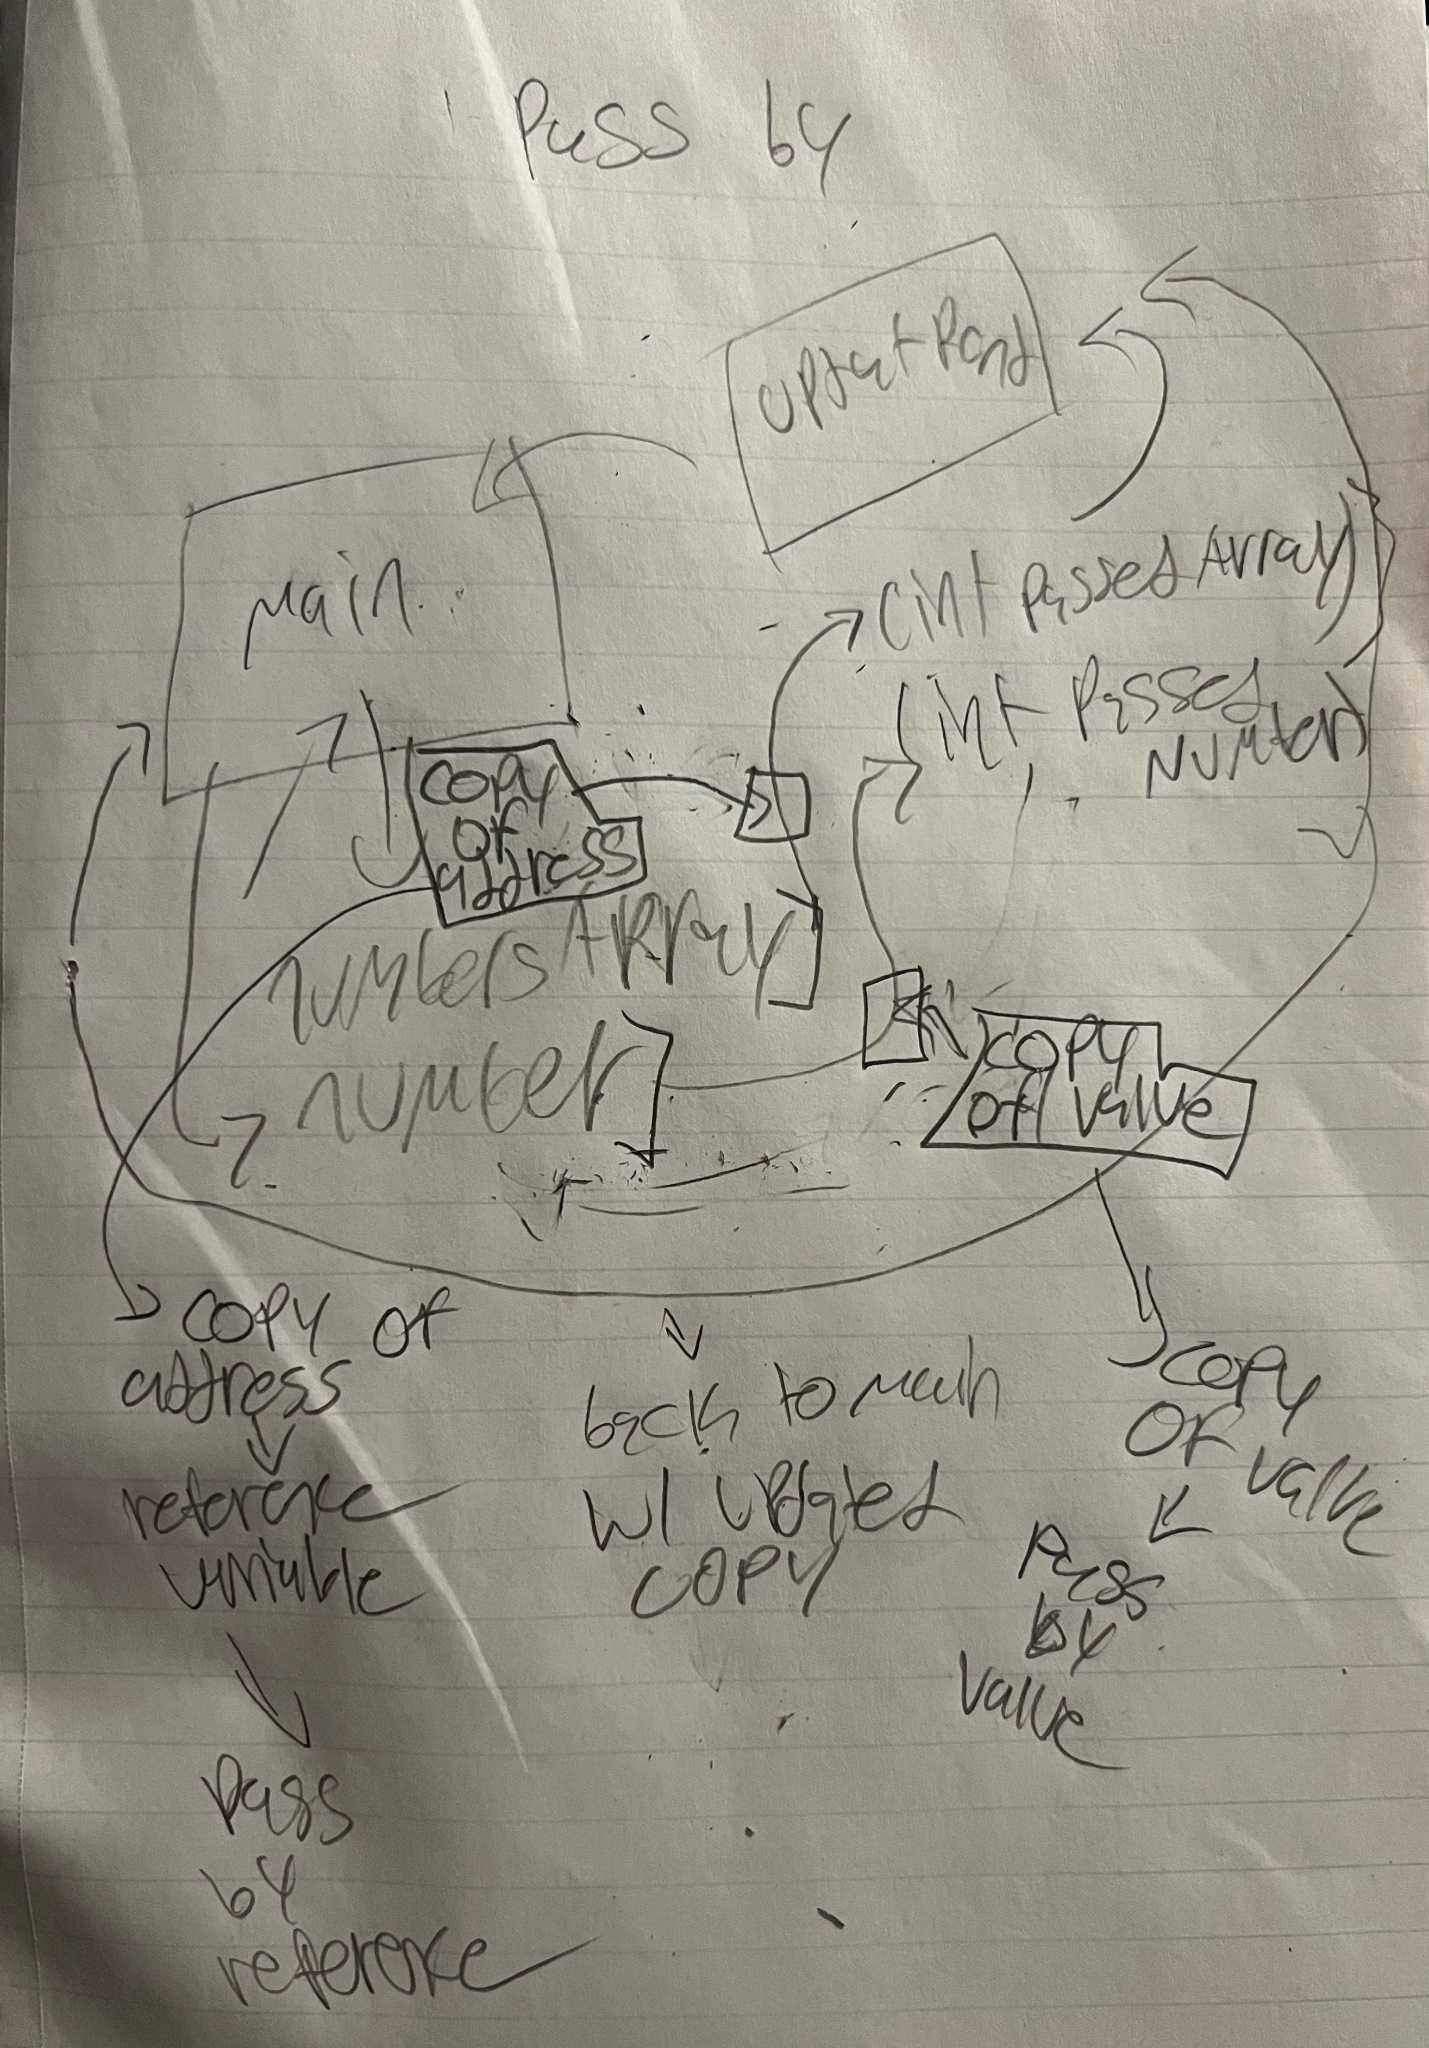 Pass by
Main
(int passedArray)
(int passed
Number)
copy
of
address
numbersArray
number
copy
of value
copy of
address
reference
variable
Pass
by
reference
back to main
w/ updated
copy
copy
of value
Pass
by
value